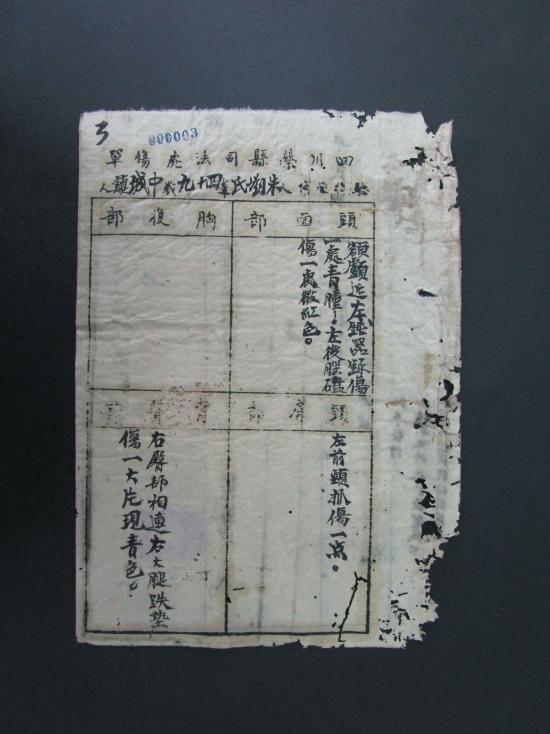 3
000003
四川縣司法處傷單
朱 氏年四十九歲中城鎮人
頭面部
額顱近左 器 傷
一處青腫。左後腿磕
傷一處微紅色。
胸腹部
頸肩部
左前頸抓傷一点。
背脊
右臀部相連右大腿跌墊
傷一大片現青色。